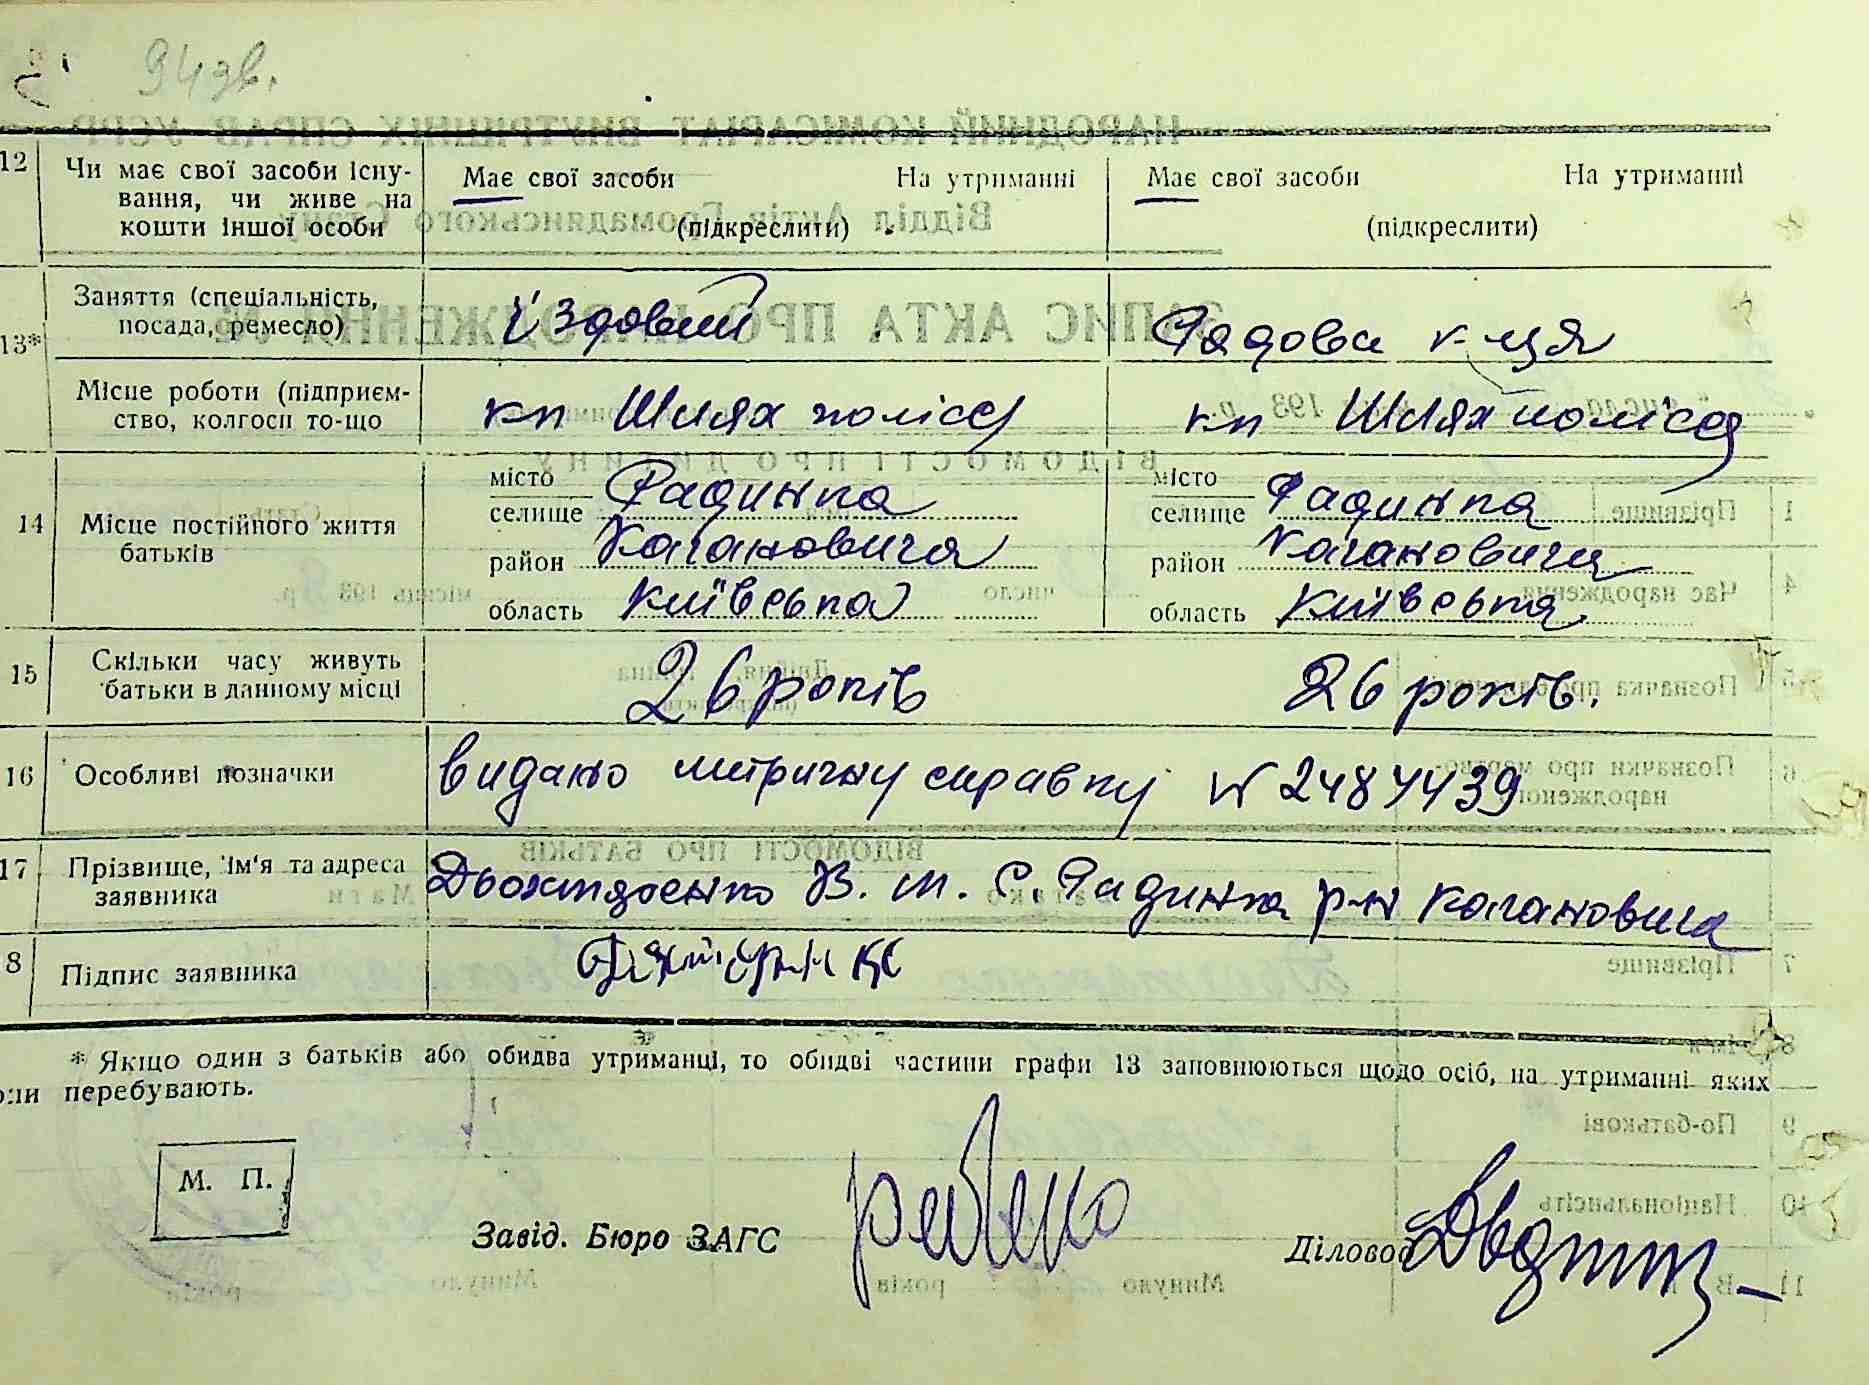 94зв.
12 Чи має свої засоби існу- Має свої засоби На утриманні Має свої засоби На утриманні
вання, чи живе на
кошти іншої особи (підкреслити) (підкреслити)
13* Заняття (спеціальність, Їздовий Рядова к-ця
посада, ремесло)
Місце роботи (підприєм- кп Шлях полісся кп Шлях полісся
ство, колгосп то-що
14 Місце постійного життя місто Радинка місто Радинка
батьків селище селище
район Кагановича район Кагановича
область Київська область Київська
15 Скільки часу живуть 26 років 26 років.
батьки в данному місці
16 Особливі позначки видано метричну справку № 2484439
17 Прізвище, ім'я та адреса В. М. С. Радинка р-н Кагановича
заявника
8 Підпис заявника
* Якщо один з батьків або обидва утриманці, то обидві частини графи 13 заповнюються щодо осіб, на утриманні яких
они перебувають.
М. П.
Завід. Бюро ЗАГС
Діловод